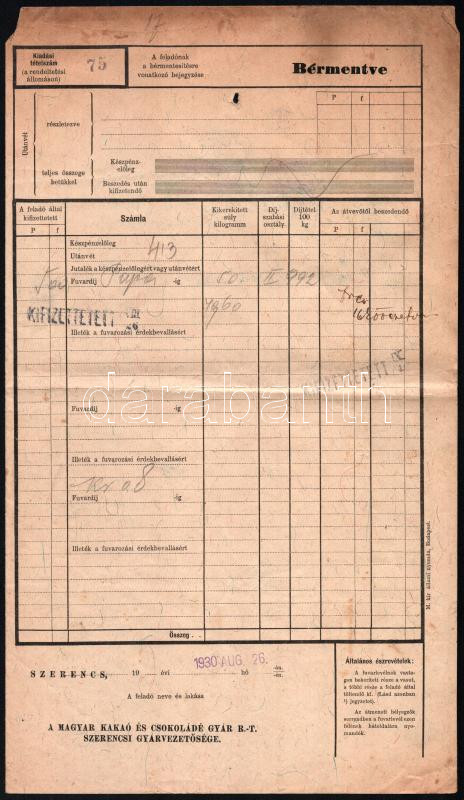 17
Kiadási
tételszám
(a rendeltetési
állomáson)
75
A feladónak
a bérmentesítésre
vonatkozó bejegyzése
Bérmentve
Utánvét
részletezve
teljes összege
betűkkel
P f
Készpénz-
előleg
Beszedés után
kifizetendő
A feladó által
kifizettetett
P f
Számla
Kikerekített
súly
kilogramm
Díj-
szabási
osztály
Díjtétel
100
kg
Az átvevőtől beszedendő
P f
Készpénzelőleg
Utánvét 413
Jutalék a készpénzelőlegért vagy utánvétért
Fuvardíj Pápa -ig 50 II 992
1960
KIFIZETTETETT
26
Illeték a fuvarozási érdekbevallásért
KIFIZETTETETT
darabanth
Fuvardíj -ig
Illeték a fuvarozási érdekbevallásért
Fuvardíj -ig
Illeték a fuvarozási érdekbevallásért
Összeg
M. kir. állami nyomda, Budapest.
SZERENCS, 19 évi hó -én.
-én.
1930 AUG. 26.
A feladó neve és lakása
A MAGYAR KAKAÓ ÉS CSOKOLÁDÉ GYÁR R.-T.
SZERENCSI GYÁRVEZETŐSÉGE.
Általános észrevételek:
A fuvarlevélnek vasta-
gon bekerített része a vasut,
a többi része a feladó által
töltendő ki. (Lásd azonban
¹) jegyzetet).
Az átmeneti bélyegzők
sorrendben a fuvarlevél ezen
felének hátoldalára nyo-
mandók.